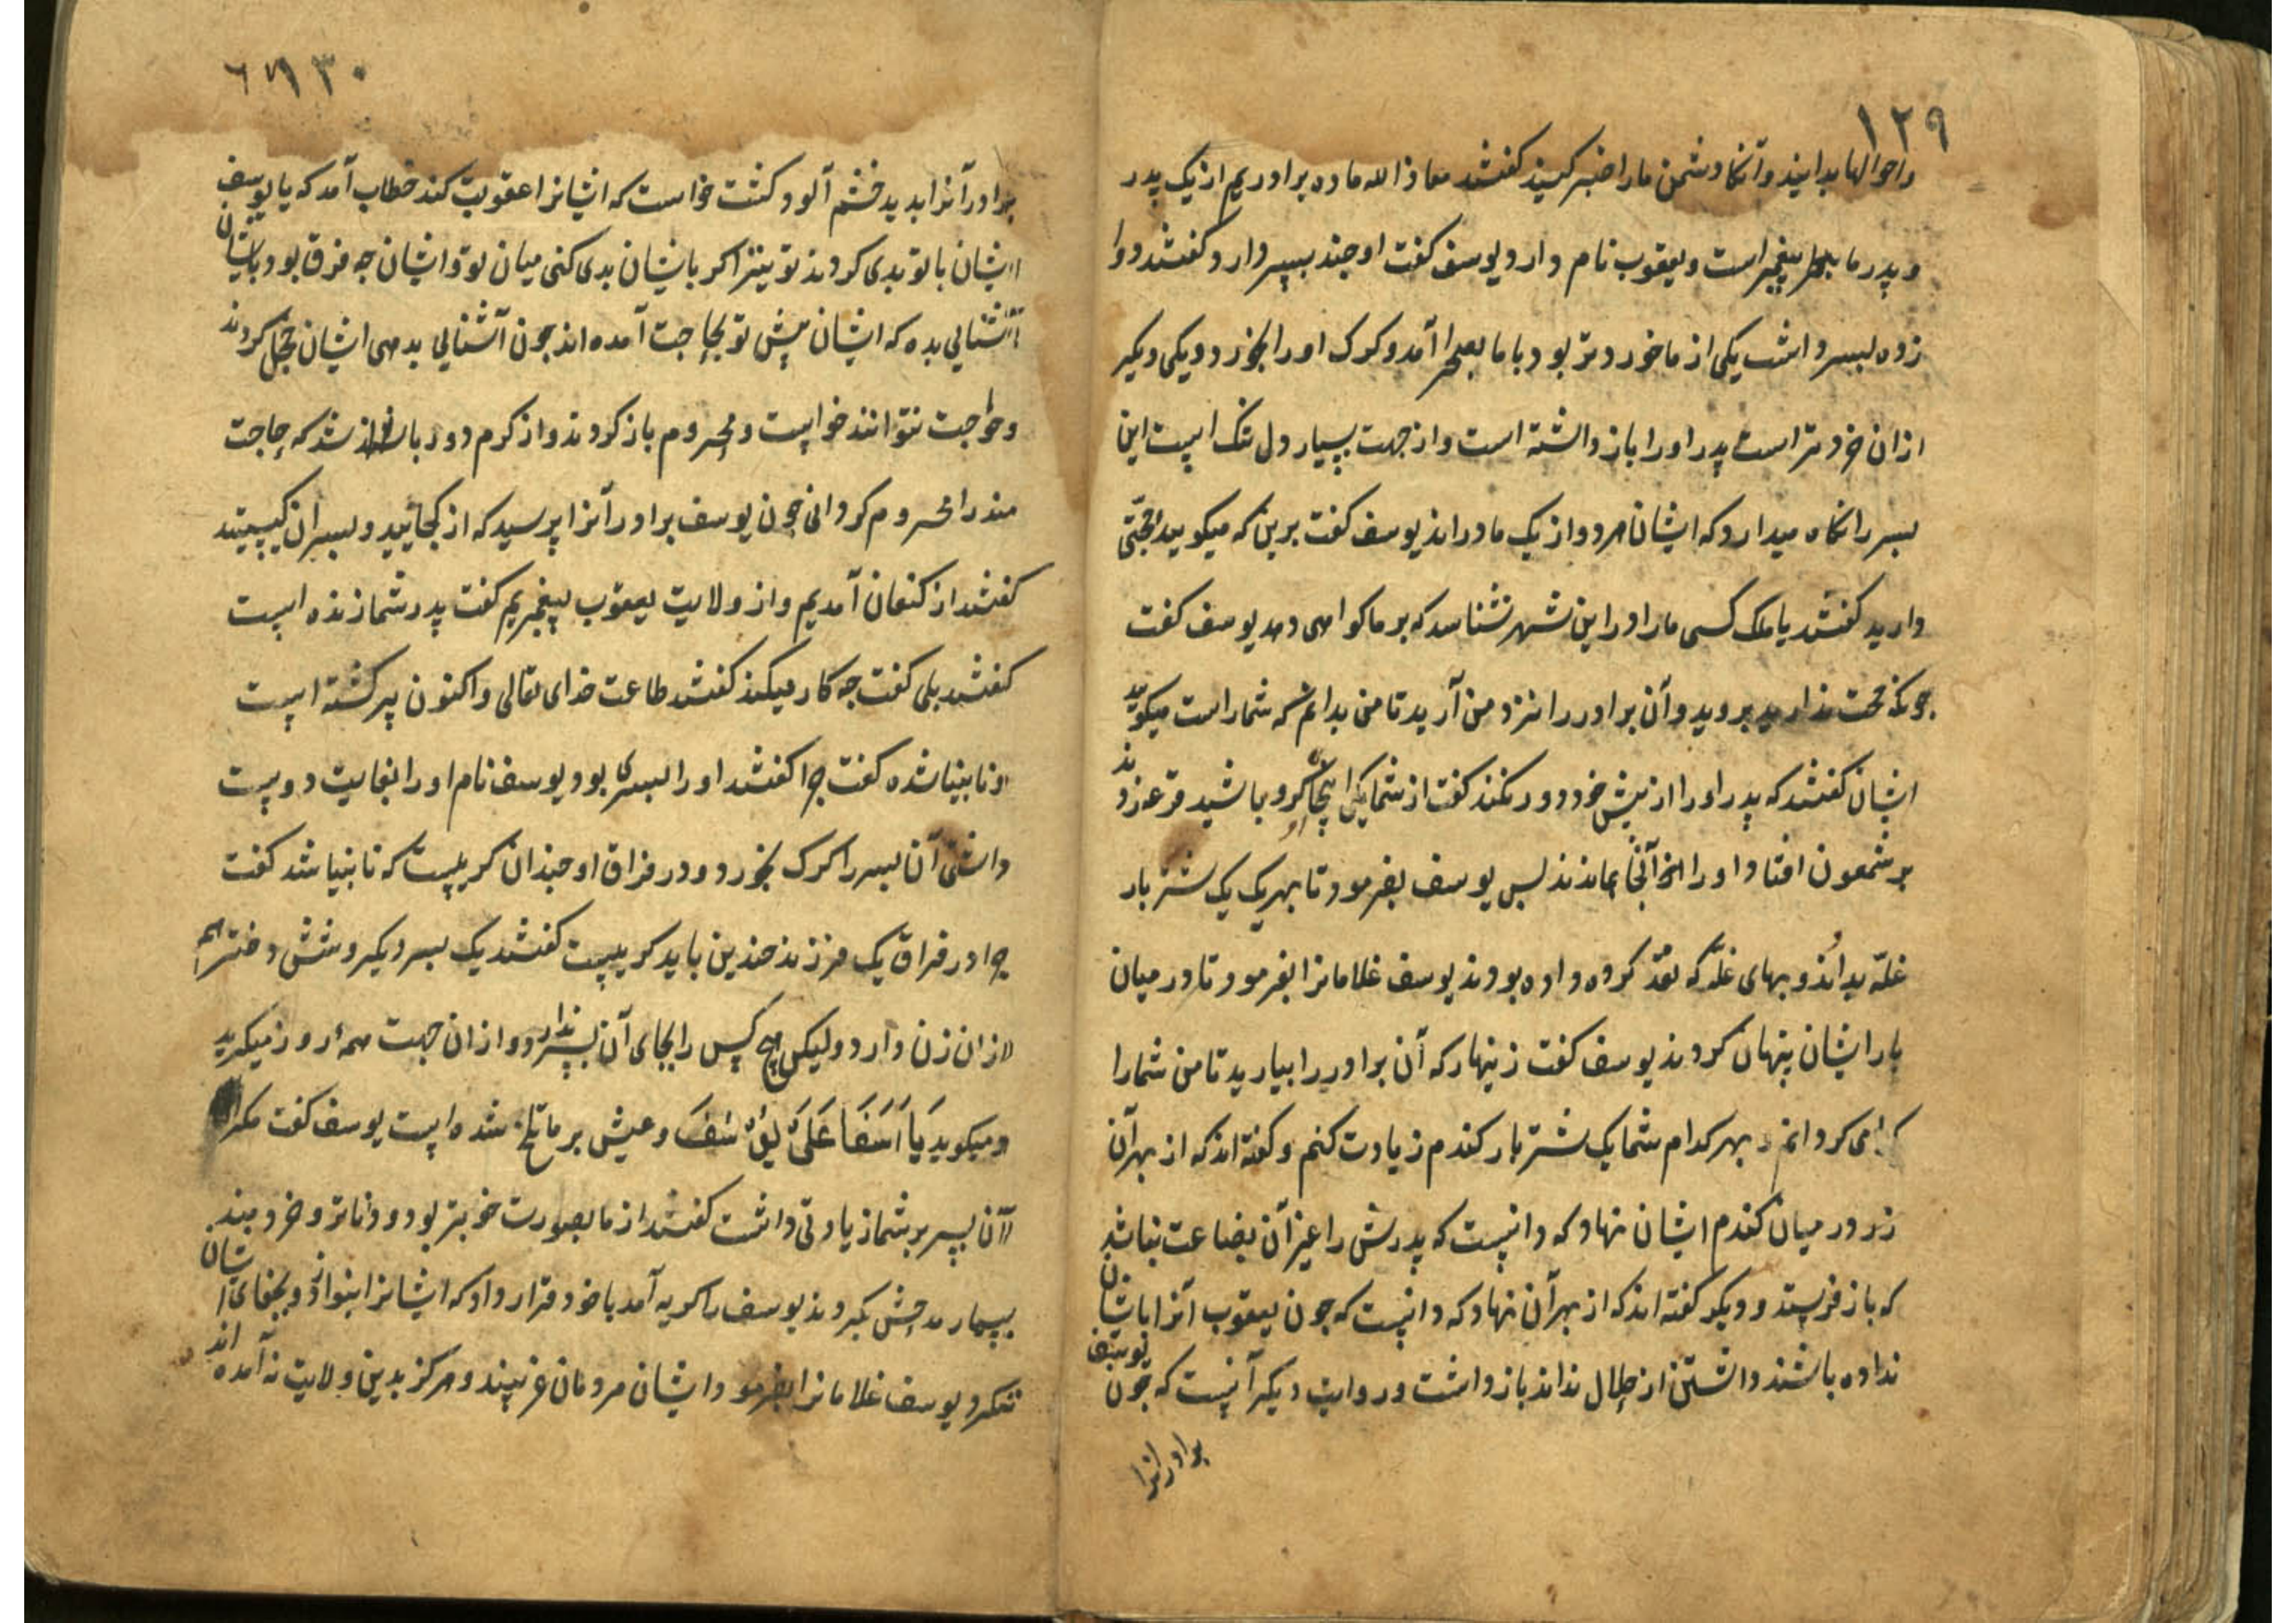 ۱۲۹
واحوالها بدانید و آنکاه دشمن ما را خبر کنید کفتند معاذ الله ما ده برادریم از یک پدر
و پدر ما پیغمبر است و یعقوب نام دارد یوسف کفت او چند پسر دارد کفتند دوا
زده پسر داشت یکی از ما خوردتر بود با ما بصحرا آمد و کرک او را بخورد و یکی دیکر
از ان خردتر است پدر او را باز داشته است و از جهت بسیار دل تنک است این
پسر را نکاه میدارد که ایشان هر دو از یک مادراند یوسف کفت برین که میکویید حجتی
دارید کفتند یا ملک کسی ما را در این شهر نشناسد که بر ما کواهی دهد یوسف کفت
چونکه حجت ندارید بروید و آن برادر را نزد من آرید تا من بدانم که شما راست میکویید
ایشان کفتند که پدر او را از پیش خود دور نکند کفت از شما یکی اینجا کرو بباشید قرعه زدند
بر شمعون افتاد او را آنجا بماندند پس یوسف بفرمود تا بهر یک یک شتر بار
غله بدادند و بهای غله که نقد کرده داده بودند یوسف غلامانرا بفرمود تا در میان
بار ایشان پنهان کردند یوسف کفت زینهار که آن برادر را بیارید تا من شما را
کرامی کردانم و بهر کدام شما یک شتر بار کندم زیادت کنم و کفته اند که از بهر آن
زر در میان کندم ایشان نهاد که دانست که پدرش را غیر آن بضاعت نباشد
که باز فرستد و دیکر کفته اند که از بهر آن نهاد که دانست که چون یعقوب آنرا باایشان
نداده باشند داشتن از حلال نداند باز داشت و روایت دیکر آنست که چون یوسف
برادرانرا
۱۳۰
برادرآنرا بدید خشم آلود کشت خواست که ایشانرا عقوبت کند خطاب آمد که یا یوسف
ایشان با تو بدی کردند تو نیز اکر باایشان بدی کنی میان تو و ایشان چه فرق بود باایشان
آشنایی بده که ایشان پیش تو بحاجت آمده اند چون آشنایی بدهی ایشان خجل کردند
و حاجت نتوانند خواست و محروم باز کردند و از کرم دور باشد که حاجت
مند را محروم کردانی چون یوسف برادرآنرا پرسید که از کجایید و پسران کیستید
کفتند از کنعان آمدیم و از ولایت یعقوب پیغمبریم کفت پدر شما زنده است
کفتند بلی کفت چه کار میکند کفتند طاعت خدای تعالی و اکنون پیر کشته است
و نابینا شده کفت چرا کفتند او را پسری بود یوسف نام او را بغایت دوست
داشتی آن پسر را کرک بخورد و در فراق او چندان کریست که نابینا شد کفت
چرا در فراق یک فرزند چندین باید کریست کفتند یک پسر دیکر و شش دختر هم
از ان زن دارد ولیکن هیچ کس را بجای آن پسر ندارد و از ان جهت همه روز میکرید
و میکوید یَا اَسَفَا عَلَی یُوسُفَ و عیش بر ما تلخ شده است یوسف کفت مکر
آن پسر بر شما زیادتی داشت کفتند از ما بصورت خوبتر بود و داناتر و خردمند
بسیار مدحش بکردند یوسف را کریه آمد با خود قرار داد که ایشانرا بنوازد و بجفای ایشان
ننکرد یوسف غلامانرا بفرمود ایشان مردمان غریبند و هرکز بدین ولایت نه آمده اند